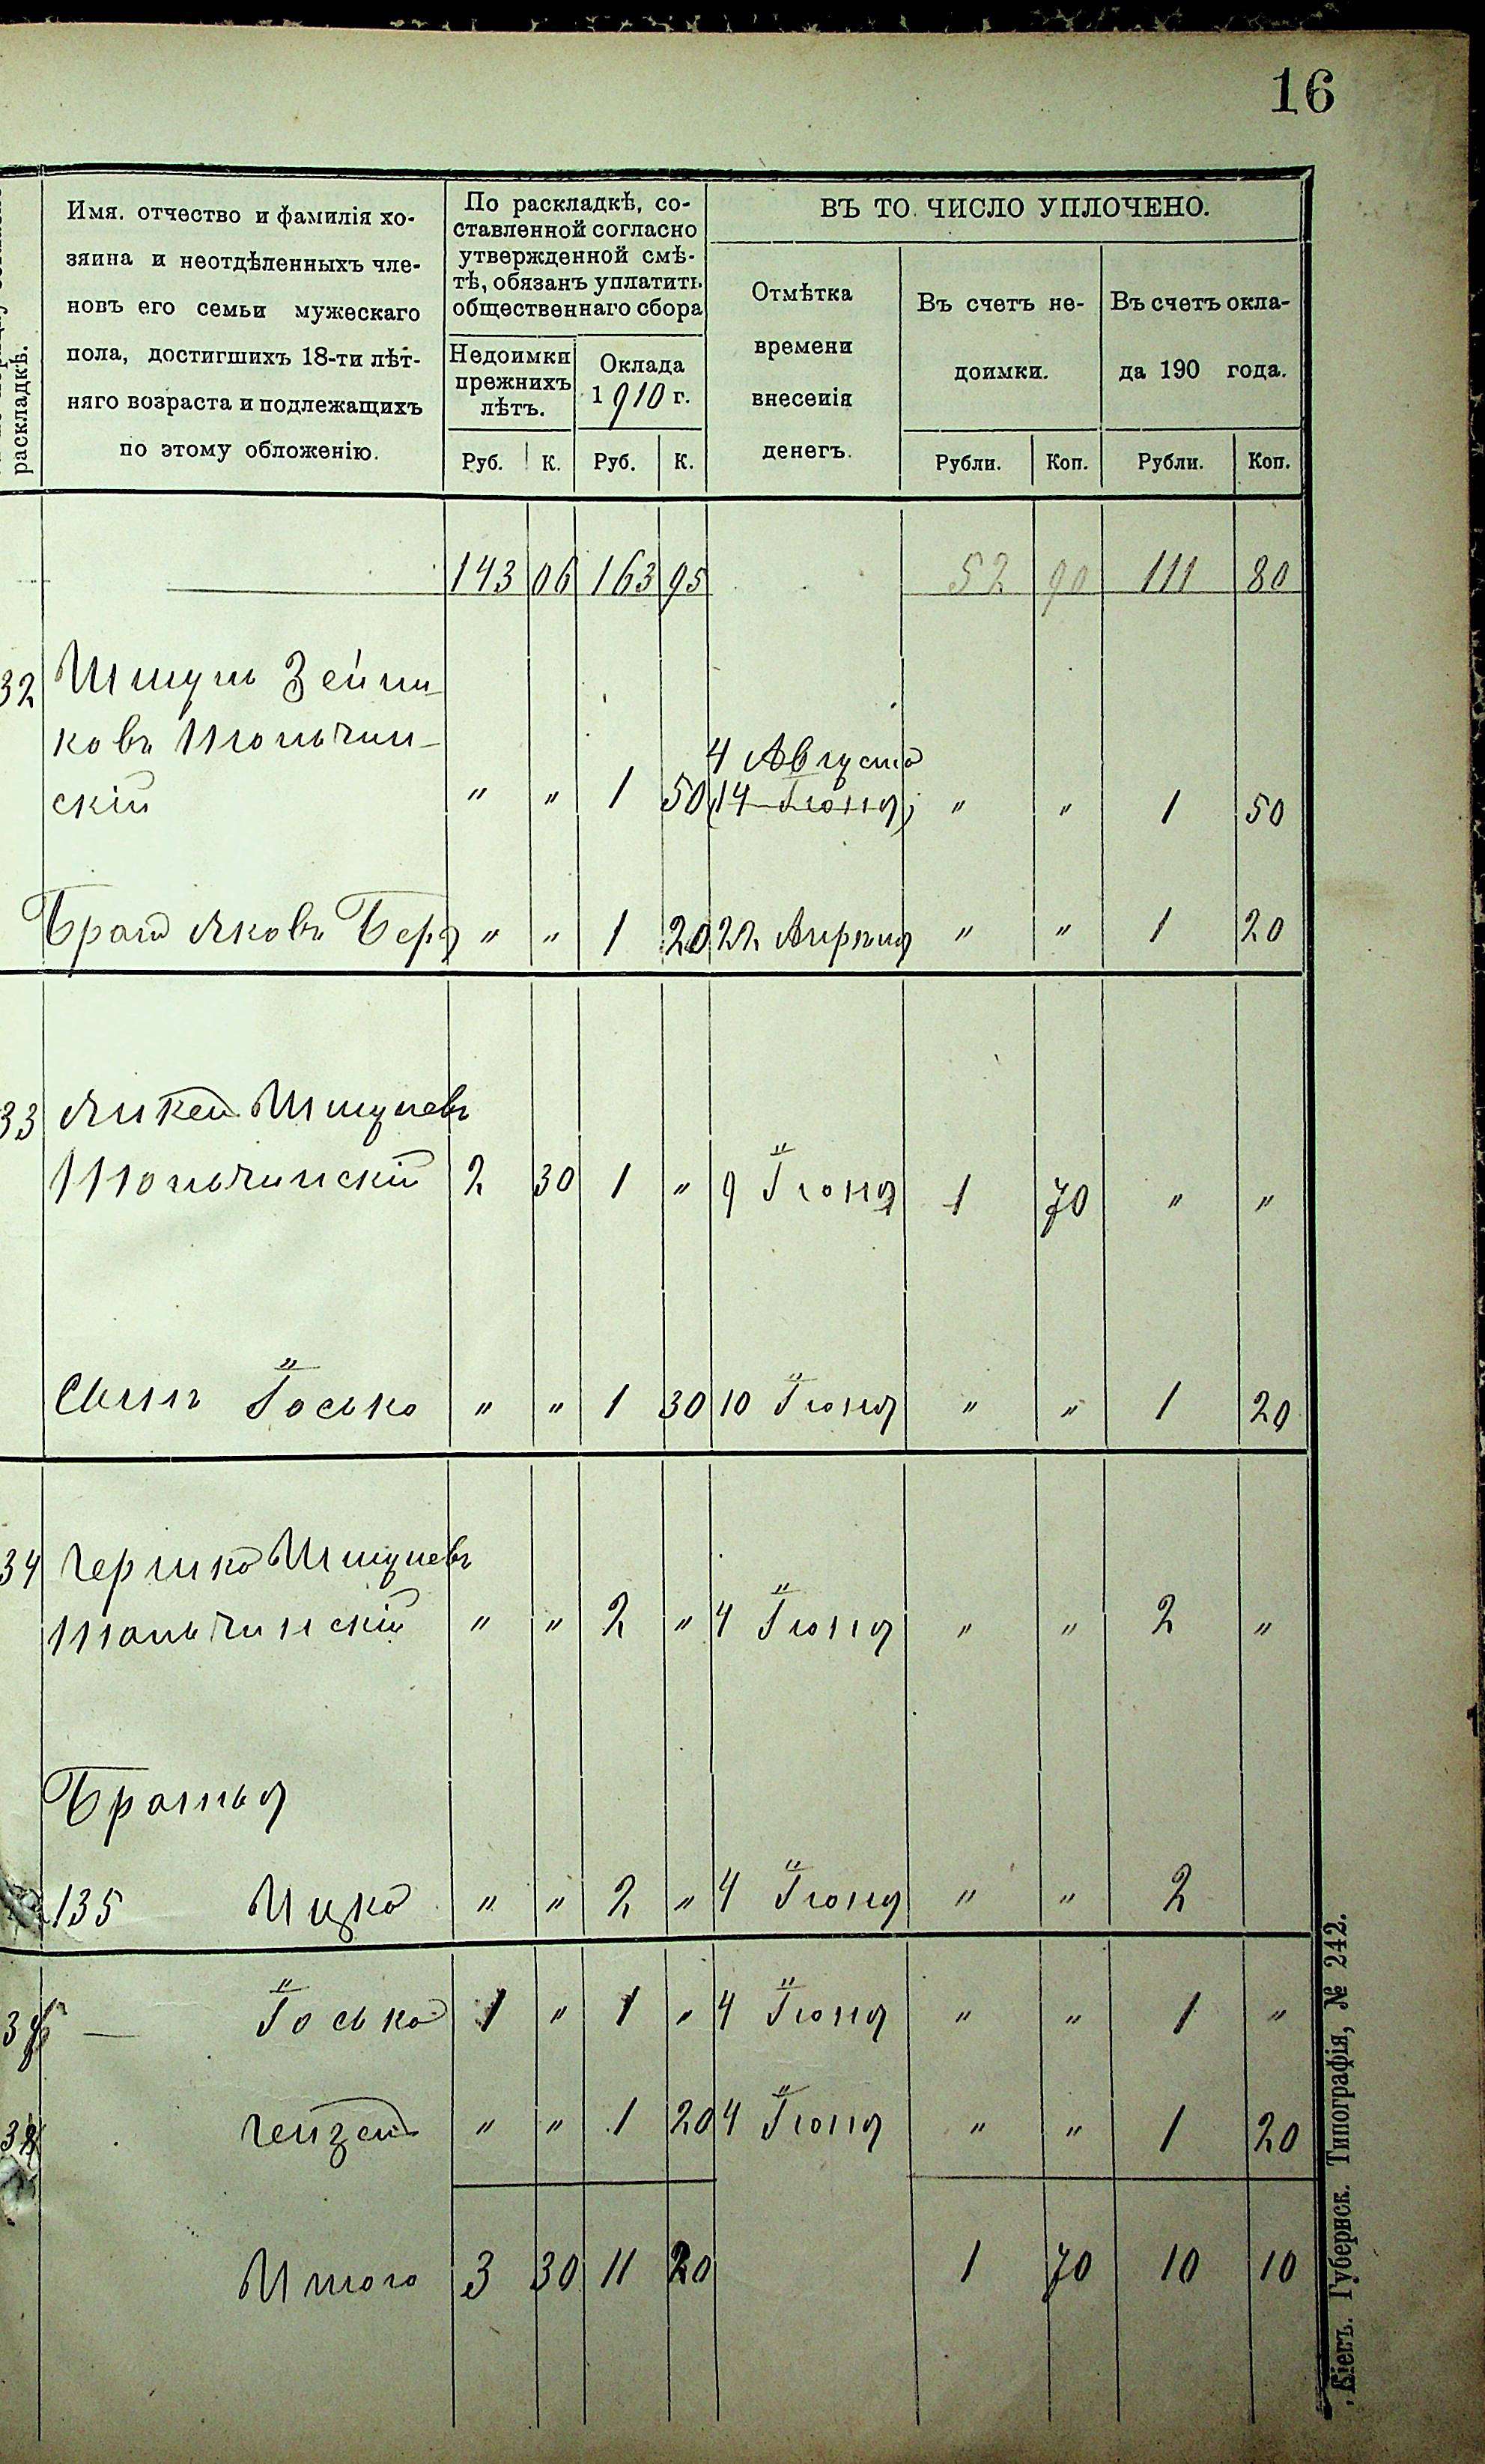 16
раскладкѣ.
Имя, отчество и фамилія хо-
зяина и неотдѣленныхъ чле-
новъ его семьи мужескаго
пола, достигшихъ 18-ти лѣт-
няго возраста и подлежащихъ
по этому обложенію.
По раскладкѣ, со-
ставленной согласно
утвержденной смѣ-
тѣ, обязанъ уплатить
общественнаго сбора
Недоимки
прежнихъ
лѣтъ.
Оклада
1910 г.
Руб. К. Руб. К.
ВЪ ТО ЧИСЛО УПЛОЧЕНО.
Отмѣтка
времени
внесенія
денегъ.
Въ счетъ не-
доимки.
Въ счетъ окла-
да 190 года.
Рубли. Коп. Рубли. Коп.
143 06 163 95 52 90 111 80
32 Шмуль Зейли-
ковъ Топчин-
скій " " 1 50 4 Августа " " 1 50
(14 Іюня)
Братъ Яковъ Беръ " " 1 20 22 Апрѣля " " 1 20
33 Янкель Шмулевъ
Тольчинскій 2 30 1 " 9 Іюня 1 70 " "
Сынъ Іосько " " 1 30 10 Іюня " " 1 20
34 Гершко Шмулевъ
Тольчинскій " " 2 " 4 Іюня " " 2 "
Братья
135 Ицко " " 2 " 4 Іюня " " 2
Іосько 1 " 1 " 4 Іюня " " 1 "
Гейзель " " 1 20 4 Іюня " " 1 20
Итого 3 30 11 20 1 70 10 10
Кіевъ. Губернск. Типографія, № 242.